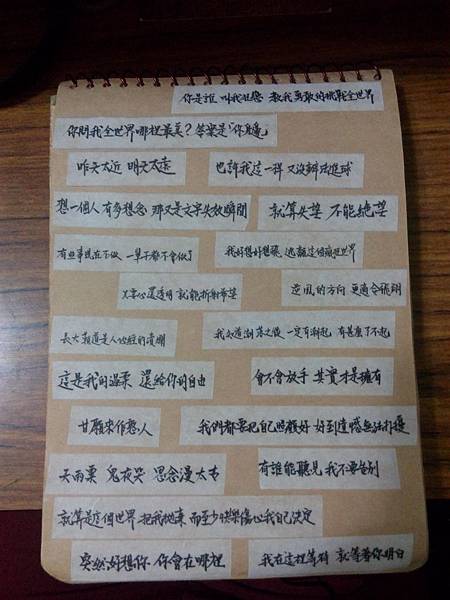 你是誰 叫我狂戀 教我勇敢的挑戰全世界
你問我全世界哪裡最美？答案是"你身邊"
昨天太近 明天太遠
也許我這一拜 又沒辦法進球
想一個人有多想念 那又是文字失效瞬間
就算失望 不能絕望
有些事現在不做 一輩子都不會做了
我好想好想飛 逃離這個瘋狂世界
只要心還透明 就能折射希望
逆風的方向 更適合飛翔
長大難道是人必經的潰爛
我知道潮落之後 一定有潮起 有甚麼了不起
這是我的溫柔 還給你的自由
會不會放手 其實才是擁有
甘願來作憨人
我們都要把自己照顧好 好到遺憾無法打擾
天雨粟 鬼夜哭 思念漫太古
有誰能聽見 我不要告別
就算是這個世界 把我拋棄 而至少快樂傷心我自己決定
突然好想你 你會在哪裡
我在這裡等待 就等著你明白